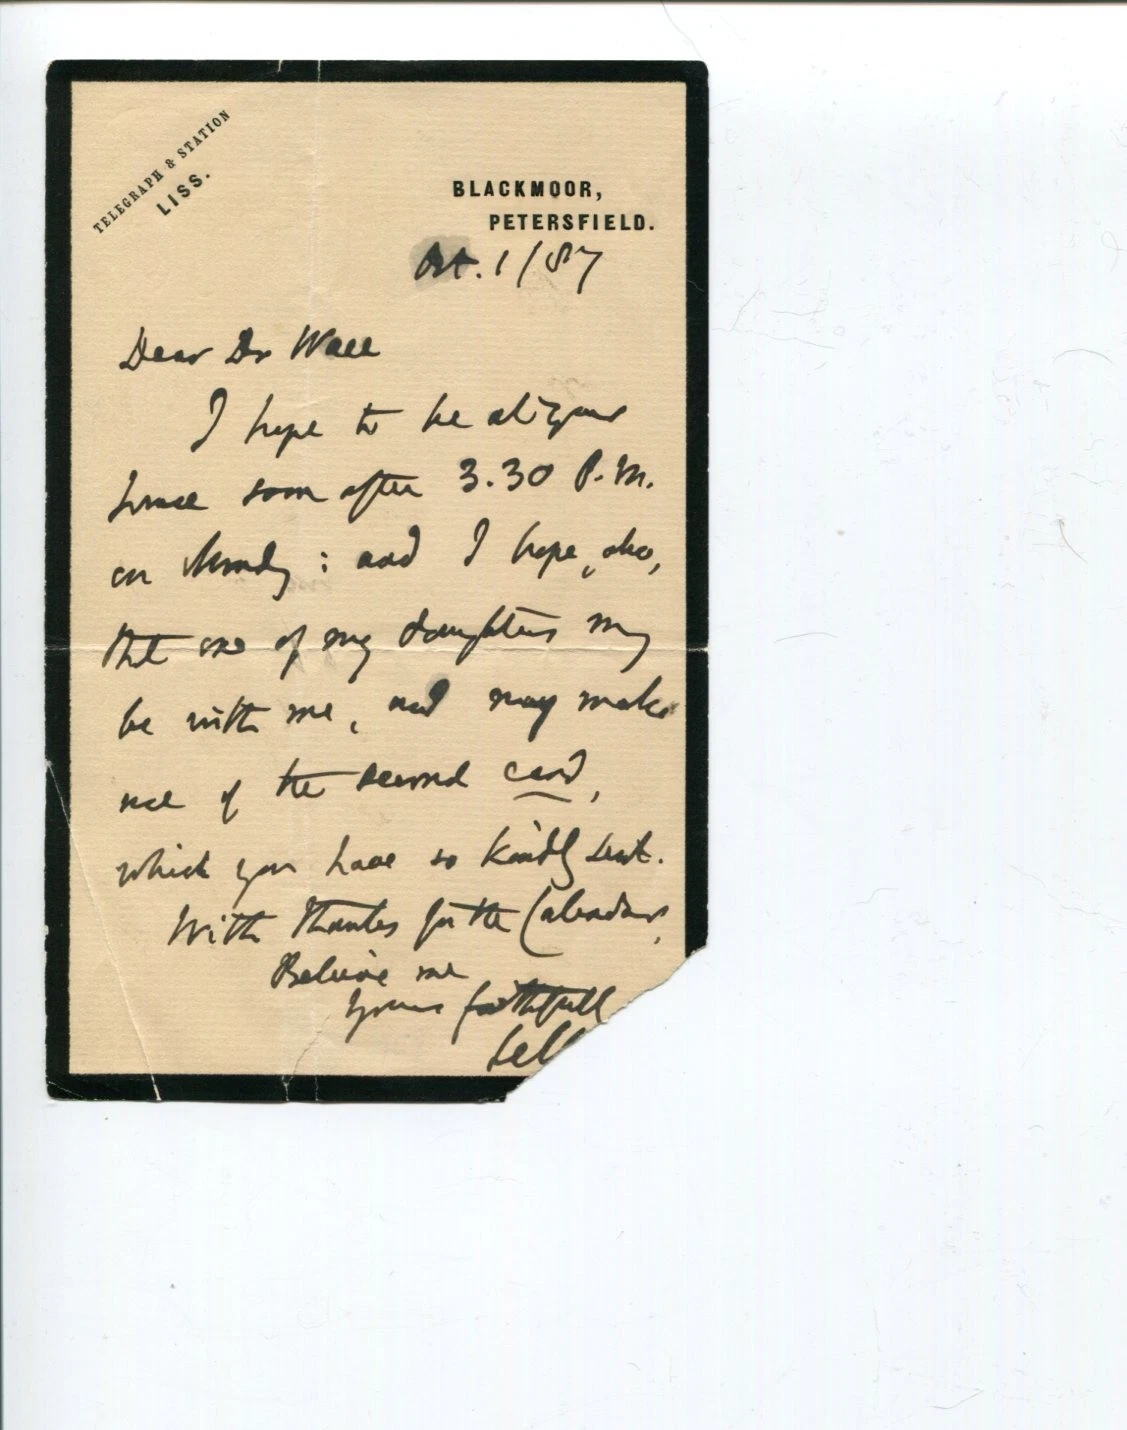 TELEGRAPH & STATION
LISS.
BLACKMOOR,
PETERSFIELD.
Oct. 1/87
Dear Dr Wace
I hope to be at your
house soon after 3.30 P.M.
on Monday : and I hope, also,
that one of my daughters may
be with me, and may make
use of the second card,
which you have so kindly sent.
With thanks for the Calendar,
Believe me
Yours faithfull
Selb